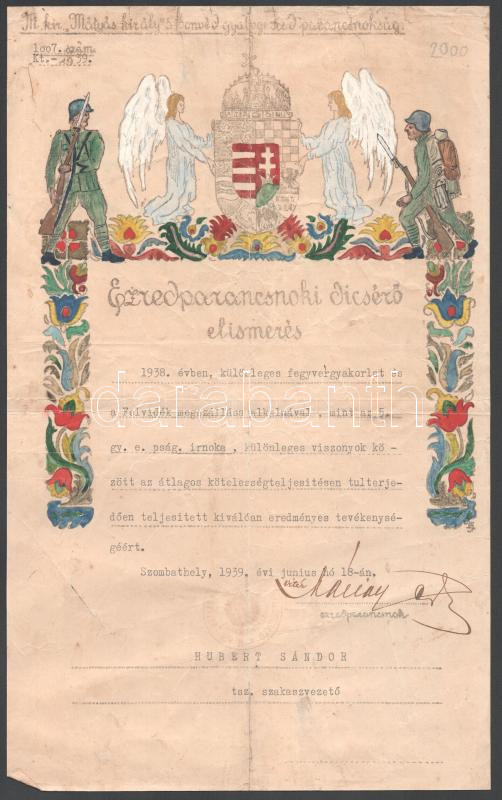 M. kir. „Mátyás király” 5. honvéd gyalogezred parancsnokság.
1007. szám.
Kt.-1939.
2900
Ezredparancsnoki dicsérő
elismerés
1938. évben, különleges fegyvergyakorlat és
a Felvidék megszállás alkalmával , mint az 5.
gy. e. pság. irnoka , különleges viszonyok kö-
zött az átlagos kötelességteljesitésen tulterje-
dően teljesitett kiválóan eredményes tevékenysé-
géért.
Szombathely, 1939. évi junius hó 18-án.
ezredparancsnok
HUBERT SÁNDOR
tsz. szakaszvezető
darabanth